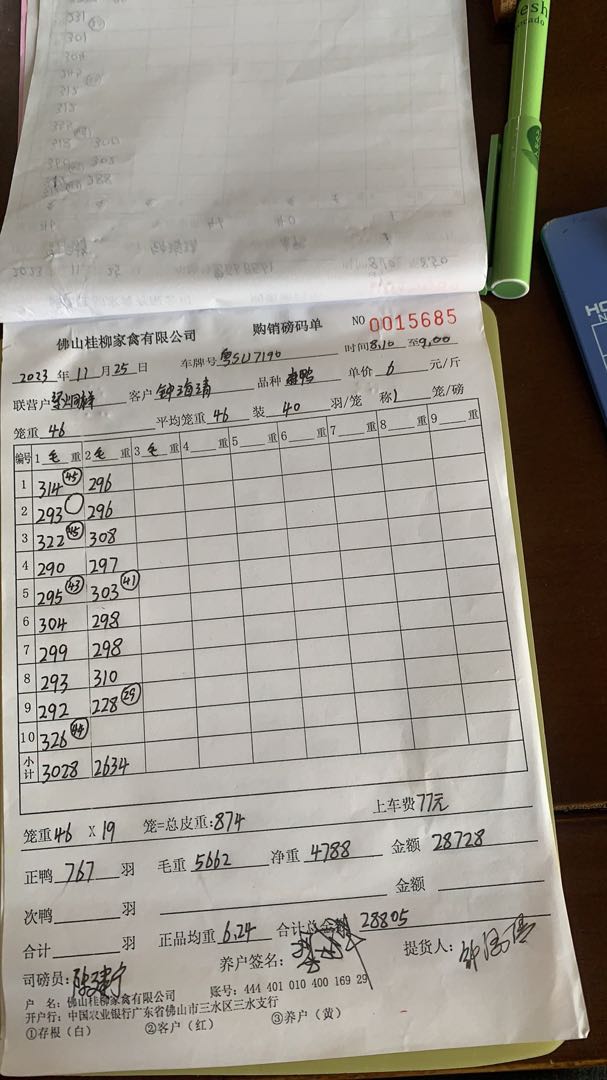 佛山桂柳家禽有限公司 购销磅码单 NO 0015685
2023 年 11 月 25 日 车牌号 粤SU7190 时间 8,10 至 9,00
联营户 客户 钟海清 品种 单价 6 元/斤
笼重 46 平均笼重 46 装 40 羽/笼 称 1 笼/磅
编号 1 毛 重 2 毛 重 3 毛 重 4 重 5 重 6 重 7 重 8 重 9 重
1 314 45 296
2 293 296
3 322 45 308
4 290 297
5 295 43 303 41
6 304 298
7 299 298
8 293 310
9 292 228 29
10 326 44
小计 3028 2634
笼重 46 X 19 笼=总皮重: 874 上车费 77元
正鸭 767 羽 毛重 5662 净重 4788 金额 28728
次鸭 羽 金额
合计 羽 正品均重 6.24 合计总金额 28805
司磅员: 养户签名: 提货人:
户 名: 佛山桂柳家禽有限公司 账号: 444 401 010 400 169 29
开户行: 中国农业银行广东省佛山市三水区三水支行
①存根（白） ②客户（红） ③养户（黄）